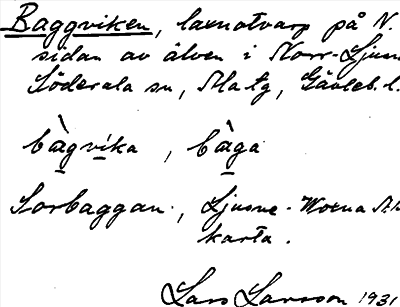 Baggviken, laxnotvarp på N.
sidan av älven i Norr-Ljusn
Söderala sn, Ala tg, Gävleb. l.
bàgvika, bàga
Storbaggan, Ljusne-Woxna
karta.
Lars Larsson 1931